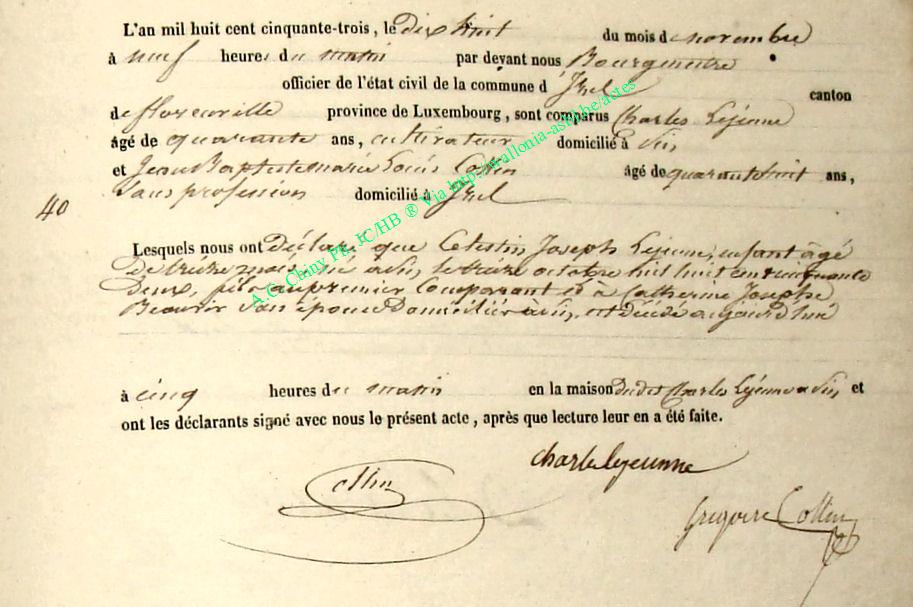 L'an mil huit cent cinquante-trois, le Dix huit du mois de novembre
à neuf heures du matin par devant nous Bourgmestre
officier de l'état civil de la commune d'Izel canton
de florenville province de Luxembourg, sont comparus Charles Lejeune
âgé de quarante ans, cultivateur domicilié à
et Jean Baptiste Marie Louis Collin âgé de quarante huit ans,
Sans profession domicilié à Izel
40
Lesquels nous ont Déclaré que Celestin Joseph Lejeune, enfant âgé
De treize mois, né à le treize octobre huit cent cinquante
Deux, fils au premier Comparant et à Catherine Josephe
son épouse Domiciliés à est décédé aujourd'hui
à cinq heures du matin en la maison dudit Charles Lejeune à et
ont les déclarants signé avec nous le présent acte, après que lecture leur en a été faite.
charle lejeunne
Collin
Gregoire Collin
A.G. Chiny Ph. JC/HB ® Via http://wallonia-asbl.be/actes